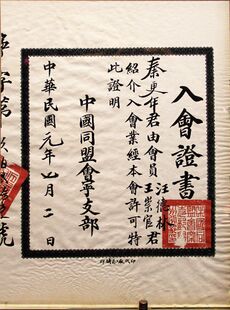 入會證書
秦更年君由會員汪德林
王棠宦君
紹介入會業經本會許可特
此證明
中國同盟會寧支部
中華民國元年七月二日
字第號